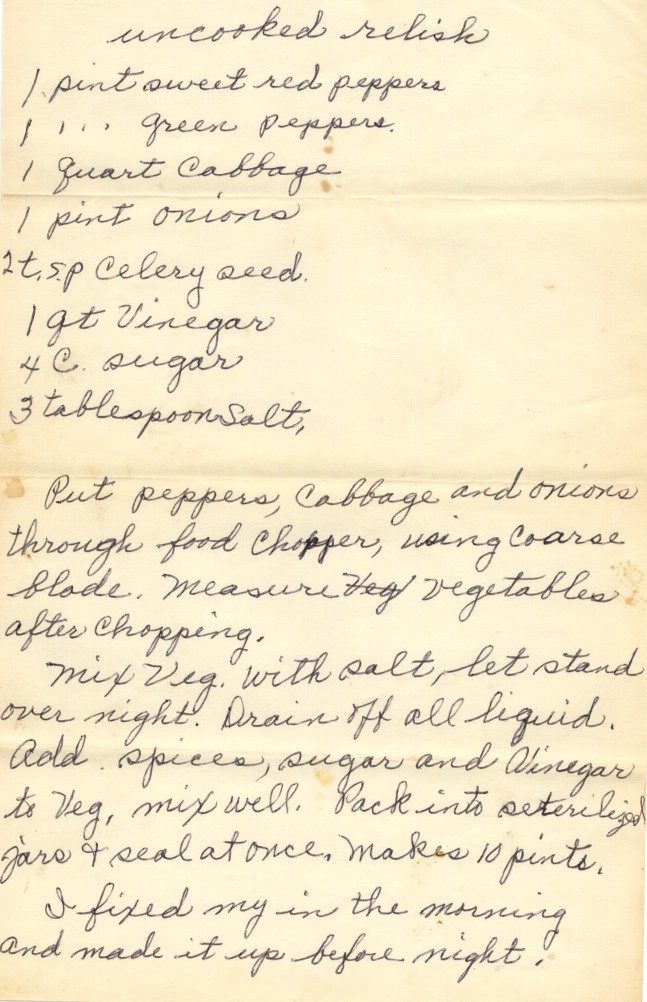 uncooked relish
1 pint sweet red peppers
1 " " green peppers.
1 quart Cabbage
1 pint onions
2 t.sp Celery seed.
1 qt Vinegar
4 C. sugar
3 tablespoon Salt,
Put peppers, Cabbage and onions
through food Chopper, using Coarse
blade. Measure Veg Vegetables
after Chopping.
Mix Veg. with salt, let stand
over night. Drain off all liquid.
Add spices, sugar and Vinegar
to Veg, mix well. Pack into seterilized
jars & seal at once. Makes 10 pints.
I fixed my in the morning
and made it up before night.